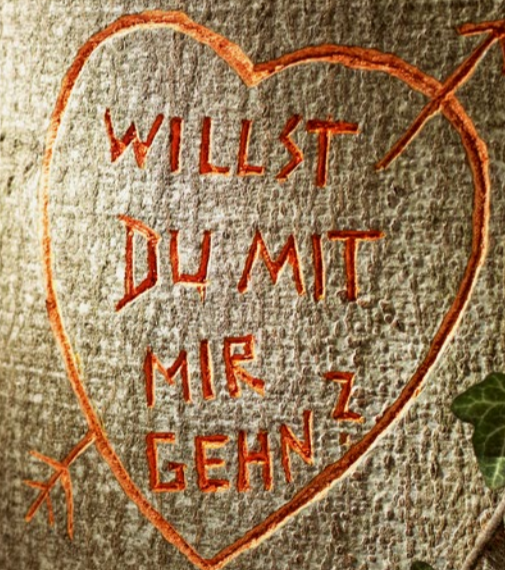 WILLST
DU MIT
MIR
GEHN?